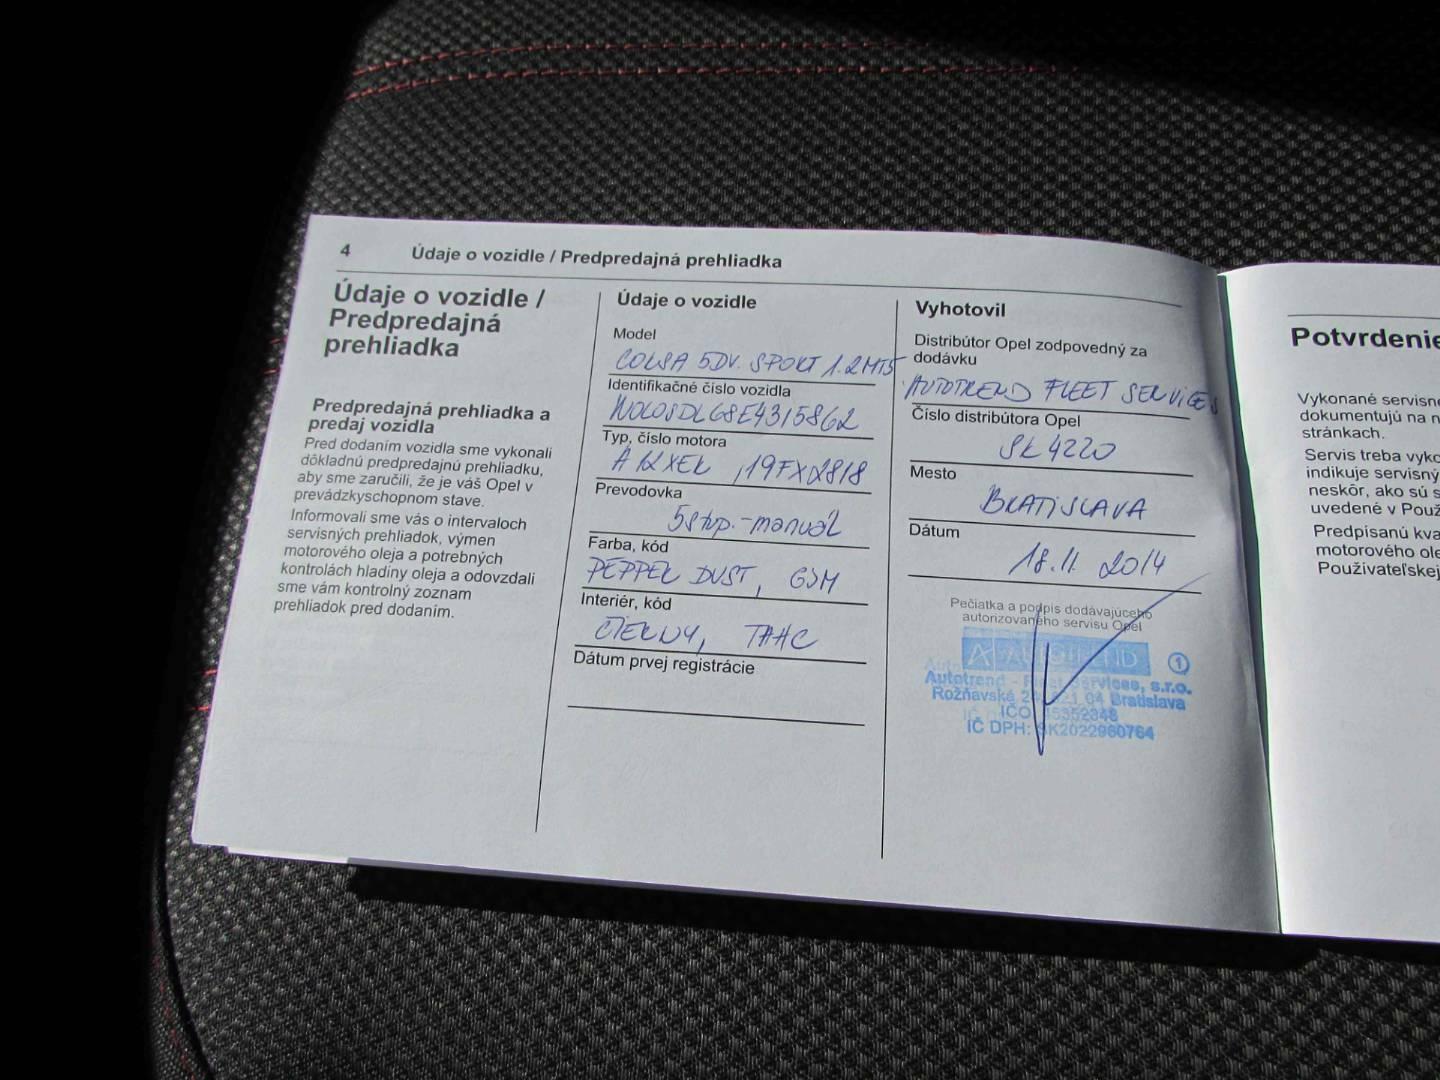 4
Údaje o vozidle / Predpredajná prehliadka
Údaje o vozidle /
Predpredajná
prehliadka
Predpredajná prehliadka a
predaj vozidla
Pred dodaním vozidla sme vykonali
dôkladnú predpredajnú prehliadku,
aby sme zaručili, že je váš Opel v
prevádzkyschopnom stave.
Informovali sme vás o intervaloch
servisných prehliadok, výmen
motorového oleja a potrebných
kontrolách hladiny oleja a odovzdali
sme vám kontrolný zoznam
prehliadok pred dodaním.
Údaje o vozidle
Model
CORSA 5DV. SPORT 1.2 MT5
Identifikačné číslo vozidla
W0L0SDL68E4315862
Typ, číslo motora
A12XER, 19FX2818
Prevodovka
5stup.-manuál
Farba, kód
PEPPER DUST, G3M
Interiér, kód
ČIERNY, TAHC
Dátum prvej registrácie
Vyhotovil
Distribútor Opel zodpovedný za
dodávku
AUTOTREND FLEET SERVICES
Číslo distribútora Opel
SK 4220
Mesto
BRATISLAVA
Dátum
18.11.2014
Pečiatka a podpis dodávajúceho
autorizovaného servisu Opel
AUTOTREND
1
Autotrend - Fleet Services, s.r.o.
Rožňavská 04 Bratislava
IČO
IČ DPH: SK2022960764
Potvrdenie
Vykonané servisné
dokumentujú na
stránkach.
Servis treba
indikuje servisný
neskôr, ako sú
uvedené v
Predpisanú
motorového
Používateľskej